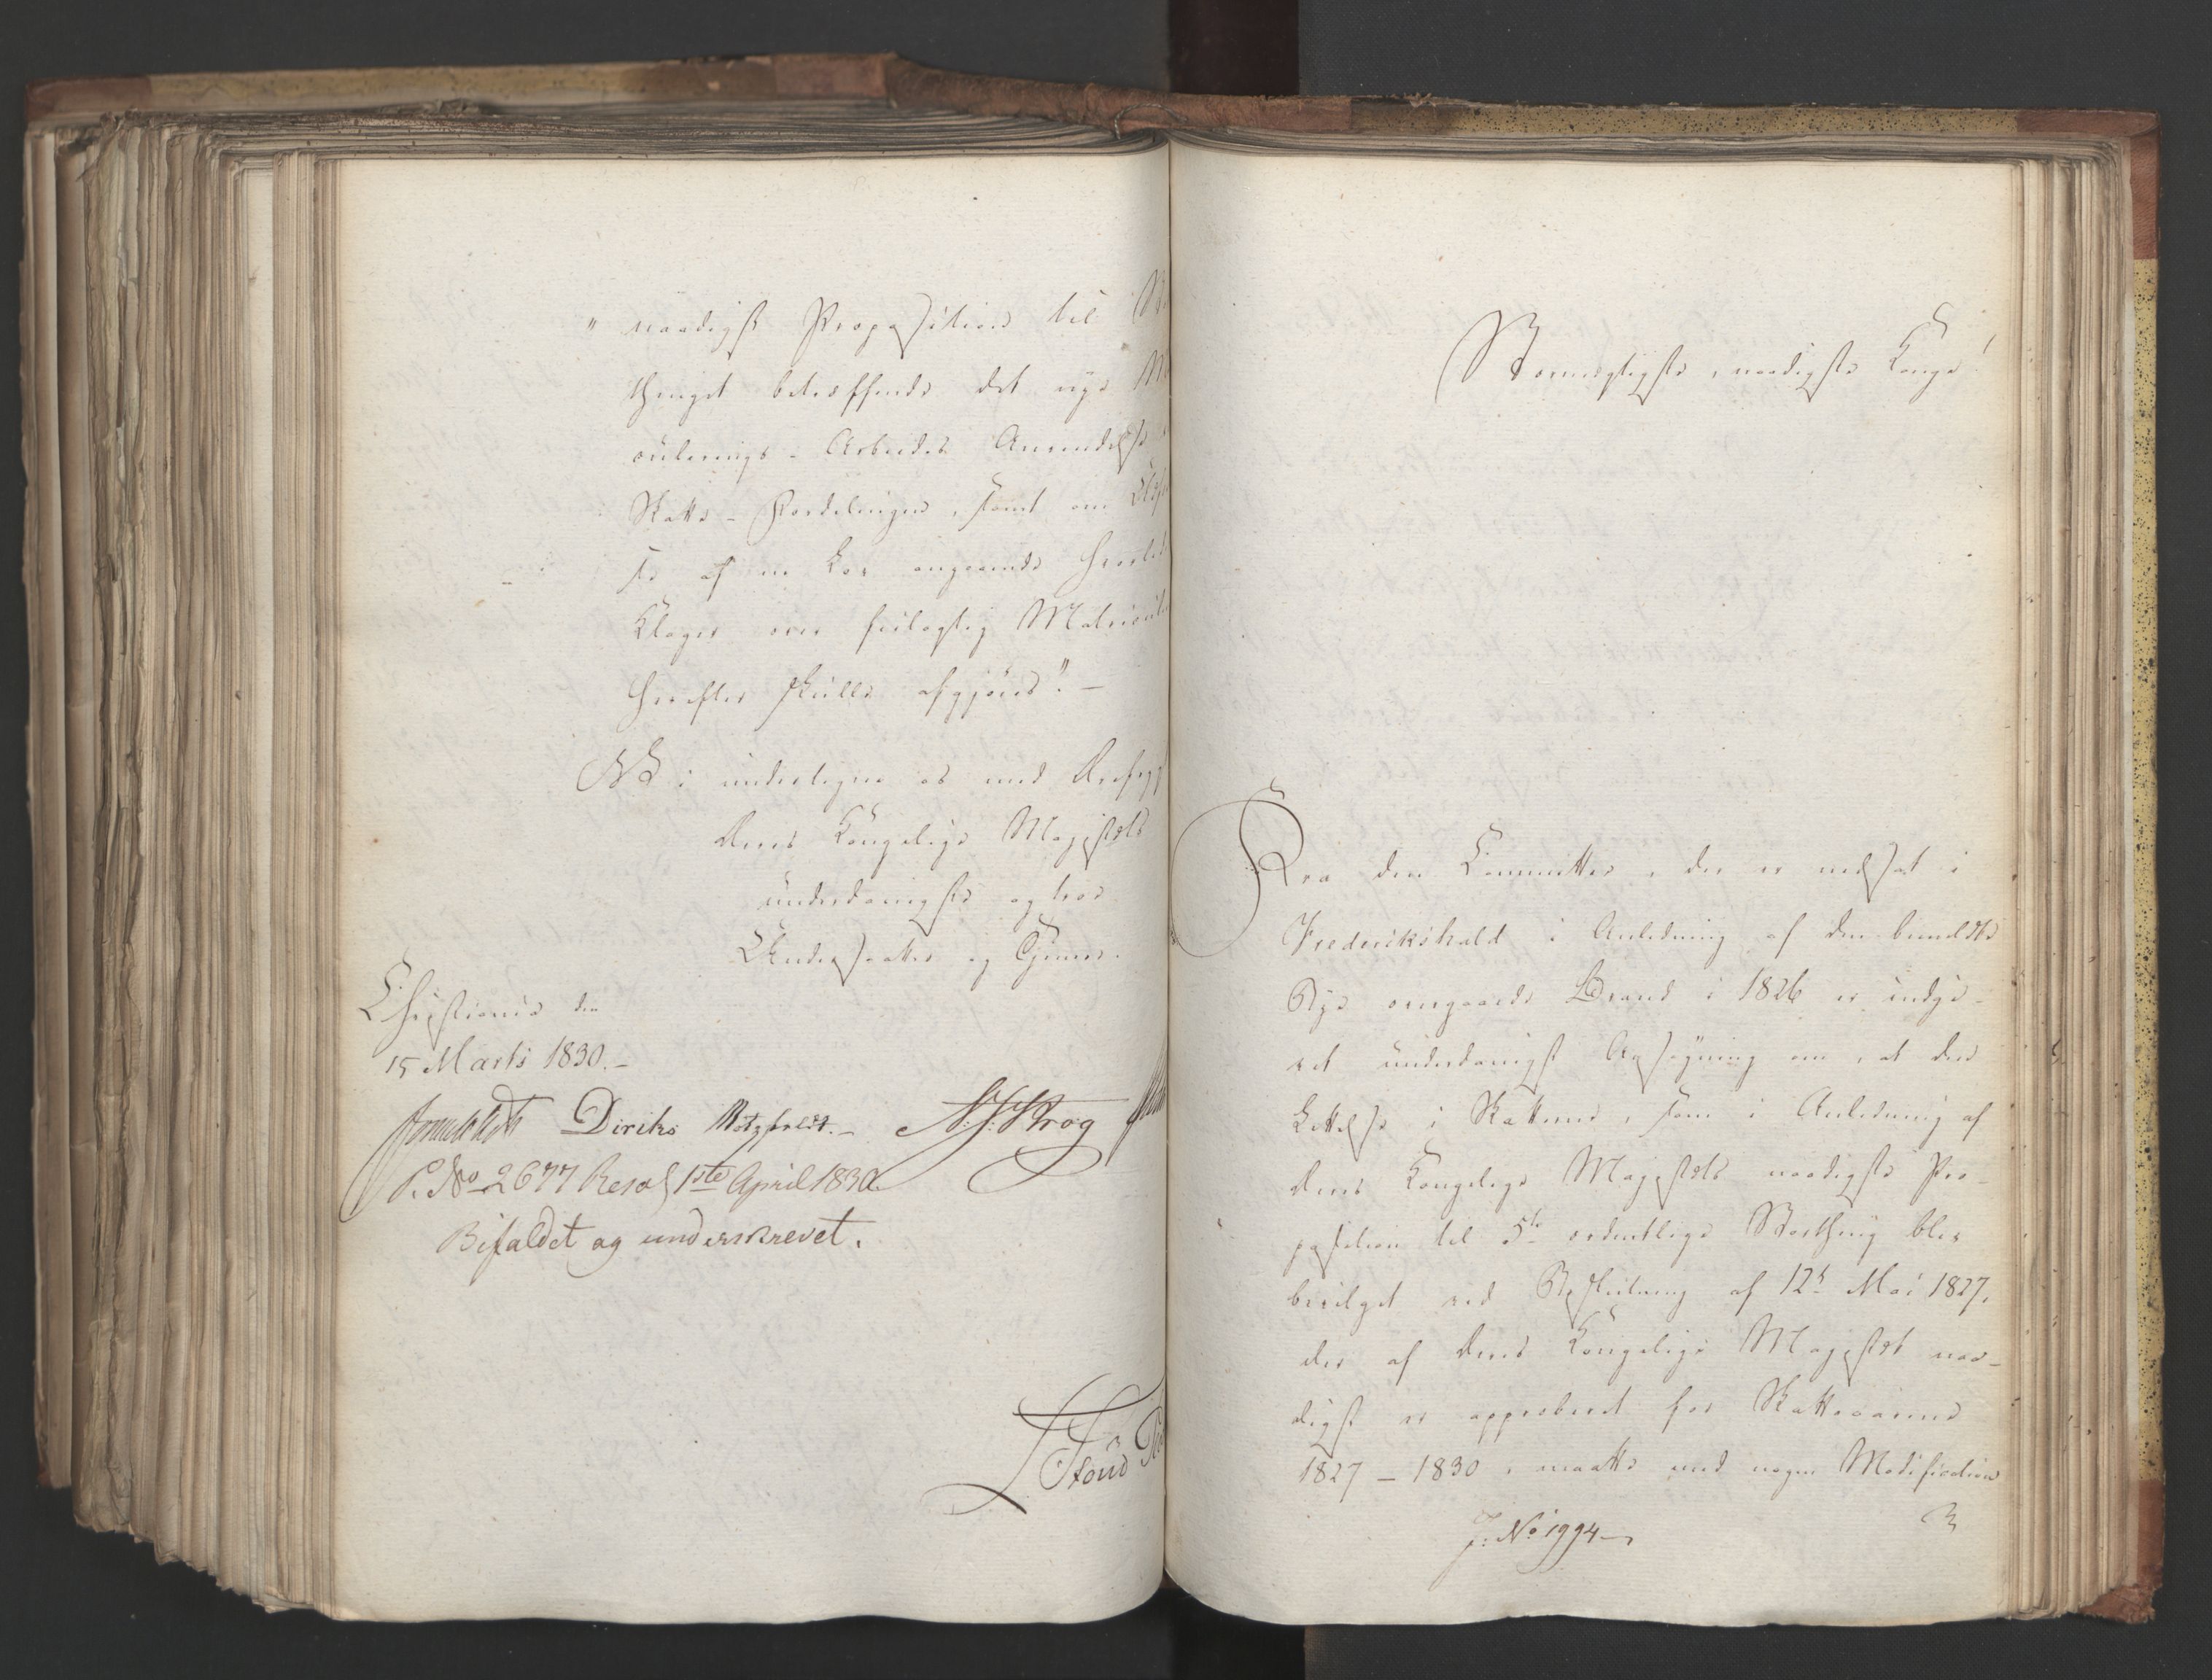 " naadigst Proposition til
thinget betræffende det nye
culerings-Arbeides Anvendelse
Skatte-Fordelingen, samt om
se af en Lov angaaende
Klager over feilagtig Matricul
herefter skulle afgjøres". —
Vi undertegne os med Ærefrygt
Deres Kongelige Majestæts
underdanigste og troe
Undersaatter og Tjenere.
Christiania den
15 Marts 1830. —
Diriks Motzfeldt. — N. J. Krog
P. No 2677 Resol 1ste April 1830
Bifaldet og underskrevet.
Stormægtigste, naadigste Konge!
Fra den Committee, der er nedsat i
Frederikshald i Anledning af den bemeldte
Bye overgaaede Brand i 1826 er indgi-
vet underdanigst Ansøgning om, at den
Lettelse i Skatterne, som i Anledning af
Deres Kongelige Majestæts naadigste Pro-
position til 5te ordentlige Storthing blev
bevilget ved Beslutning af 12te Mai 1827,
der af Deres Kongelige Majestæt naa-
digst er approberet for Skatteaarene
1827 — 1830, maatte med nogen Modification
J: No 1994